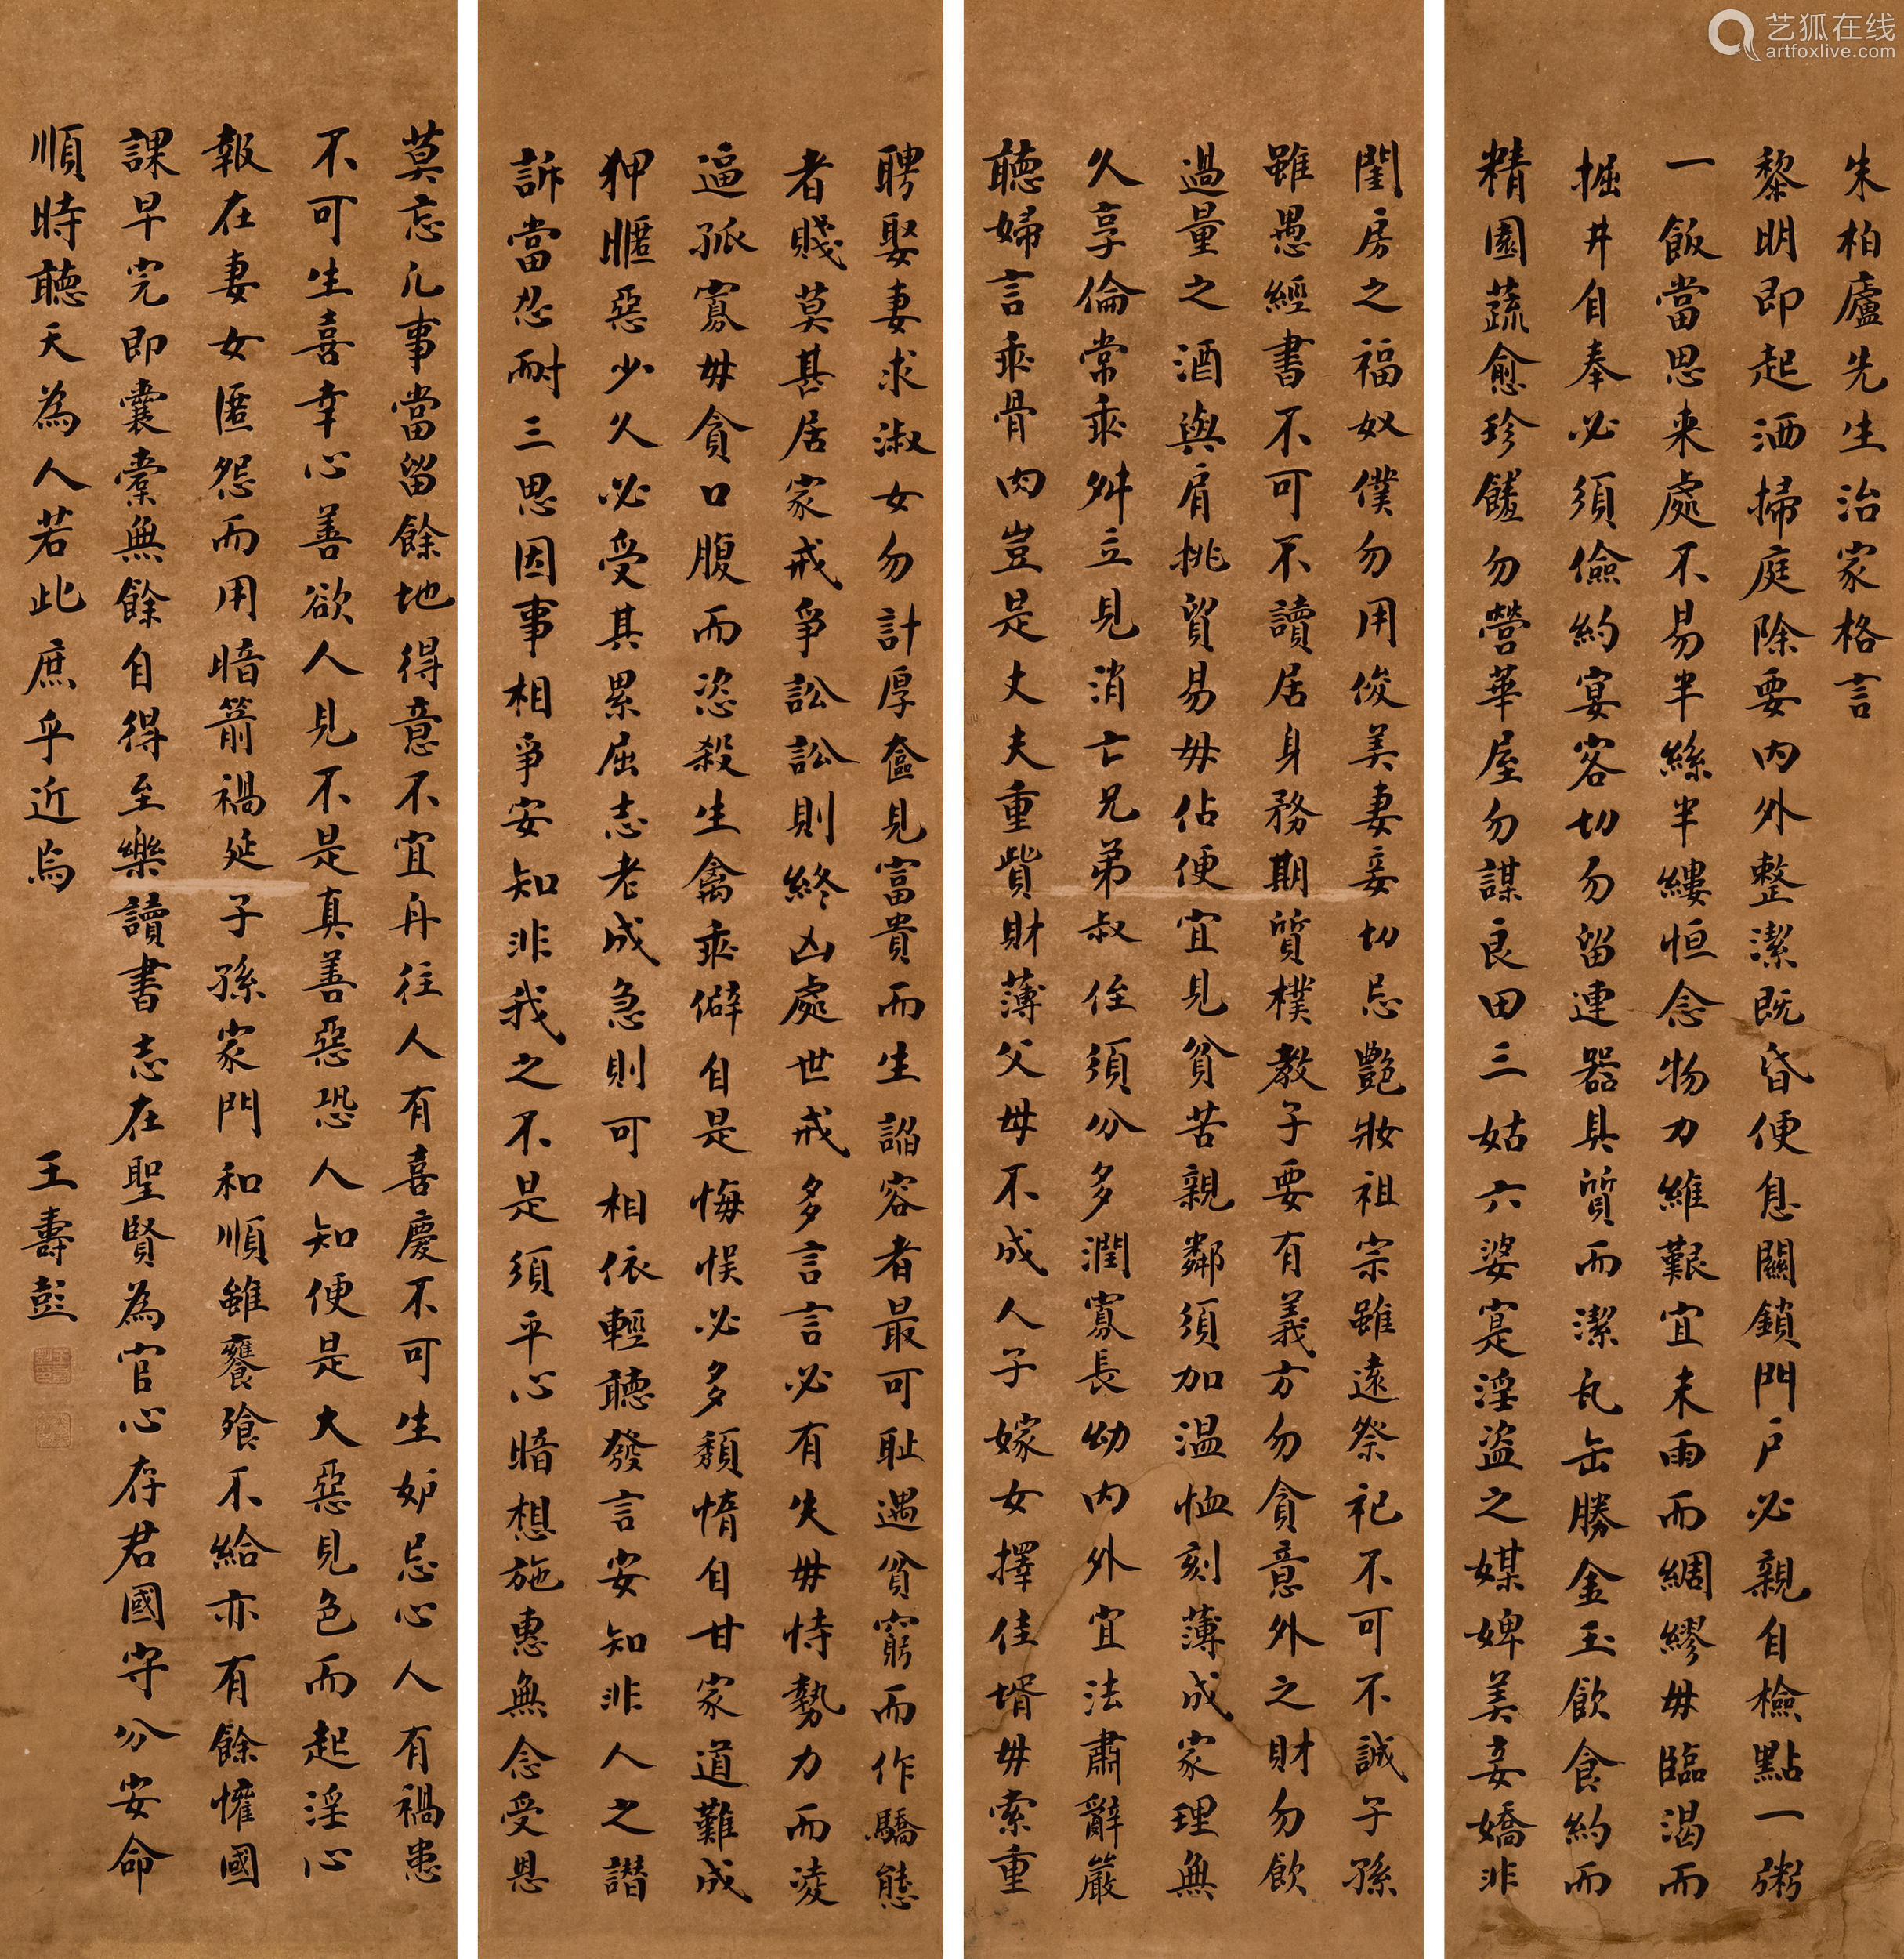 朱柏廬先生治家格言
黎明即起洒掃庭除要内外整潔既昏便息關鎖門户必親自檢點一粥
一飯當思来處不易半絲半縷恒念物力維艱宜未雨而綢繆毋臨渴而
掘井自奉必須儉約宴客切勿留連器具質而潔瓦缶勝金玉飲食約而
精園蔬愈珍饈勿營華屋勿謀良田三姑六婆寔淫盜之媒婢美妾嬌非
閨房之福奴僕勿用俊美妻妾切忌艷妝祖宗雖遠祭祀不可不誠子孫
雖愚經書不可不讀居身務期質樸教子要有義方勿貪意外之財勿飲
過量之酒與肩挑貿易毋佔便宜見貧苦親鄰須加温恤刻薄成家理無
久享倫常乖舛立見消亡兄弟叔侄須分多潤寡長幼内外宜法肅辭嚴
聽婦言乖骨肉豈是丈夫重貲財薄父母不成人子嫁女擇佳壻毋索重
聘娶妻求淑女勿計厚奩見富貴而生諂容者最可恥遇貧窮而作驕態
者賤莫甚居家戒爭訟訟則終凶處世戒多言言必有失毋恃勢力而凌
逼孤寡毋貪口腹而恣殺生禽乖僻自是悔悮必多頹惰自甘家道難成
狎暱惡少久必受其累屈志老成急則可相依輕聽發言安知非人之譖
訴當忍耐三思因事相爭安知非我之不是須平心暗想施惠無念受恩
莫忘凡事當留餘地得意不宜再往人有喜慶不可生妒忌心人有禍患
不可生喜幸心善欲人見不是真善惡恐人知便是大惡見色而起淫心
報在妻女匿怨而用暗箭禍延子孫家門和順雖饔飧不給亦有餘懽國
課早完即囊橐無餘自得至樂讀書志在聖賢為官心存君國守分安命
順時聽天為人若此庶乎近焉
王壽彭
艺狐在线
artfoxlive.com